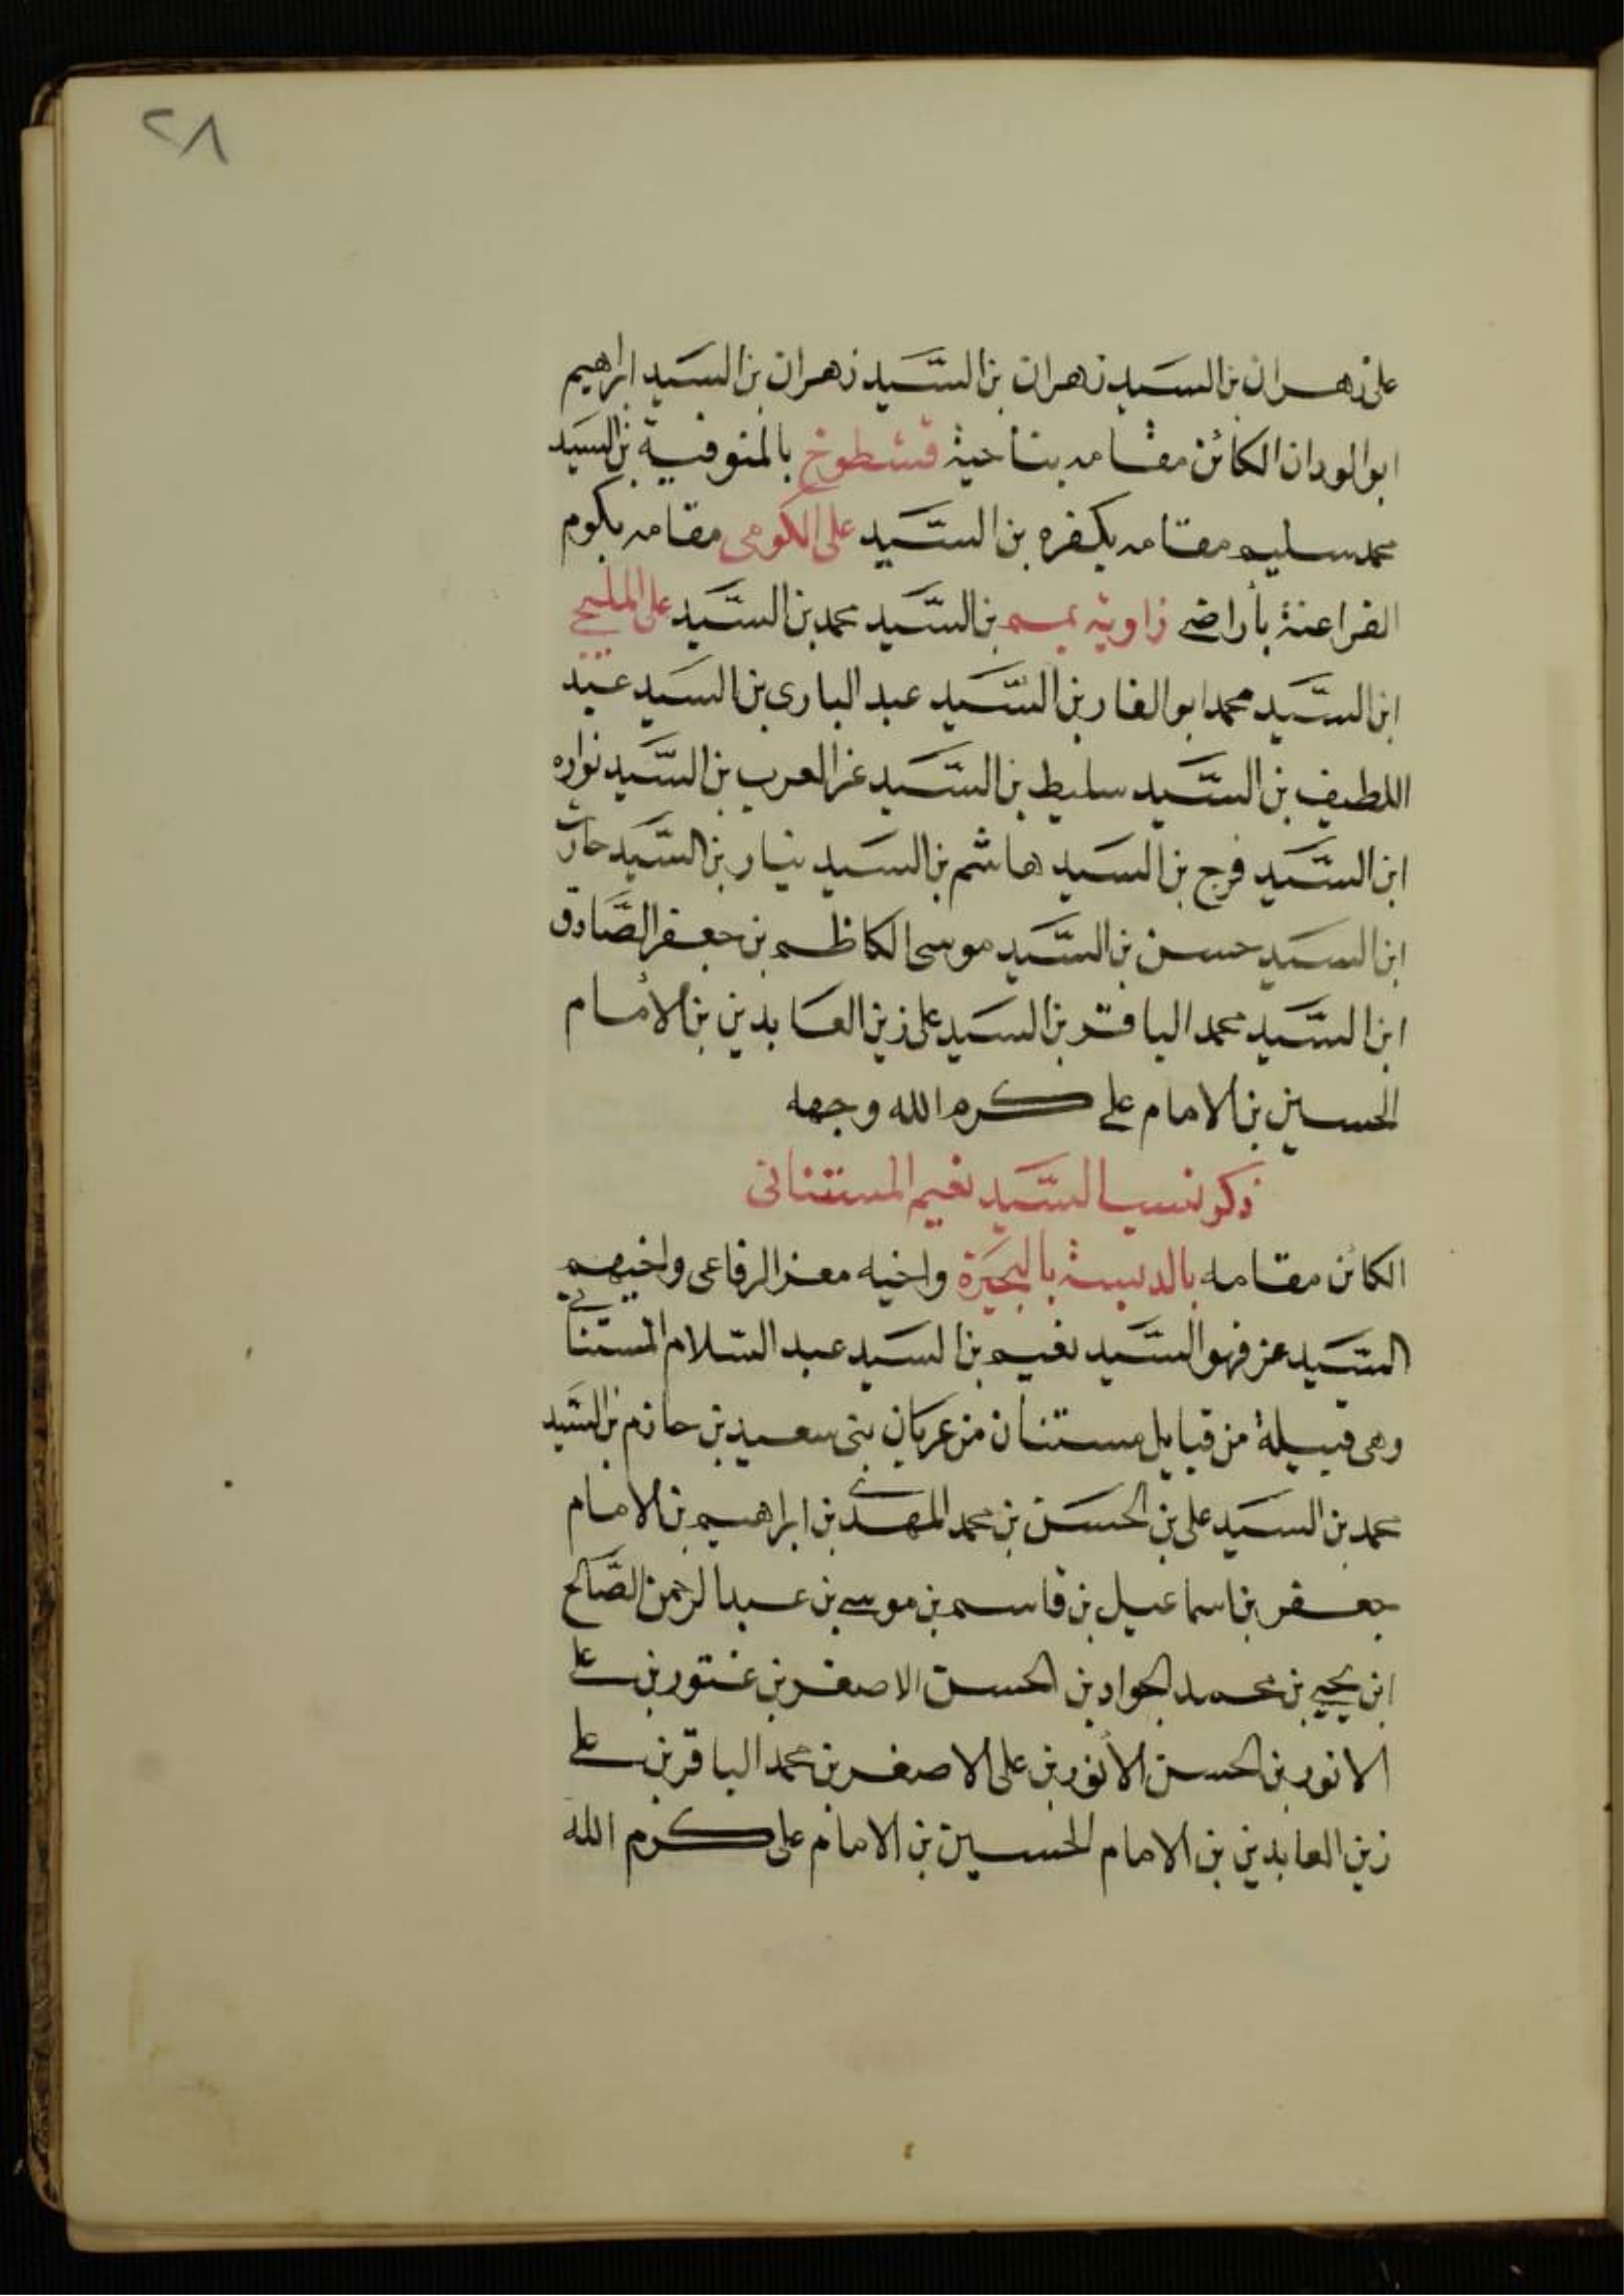 ٢٨
على زهران بن السيد زهران بن السَّيد زهران بن السَيد ابراهيم
ابوالوردان الكائن مقامه بناحية قشطوخ بالمنوفية بن السيد
محمد سليم مقامه بكفره بن السَّيد على الكومى مقامه بكوم
الفراعنة بأراضى زاوية بمم بن السَّيد محمد بن السَّيد على المليجى
ابن السَّيد محمد ابوالغار بن السَّيد عبد البارى بن السَيد عبد
اللطيف بن السَّيد سليط بن السَّيد عز العرب بن السَّيد نواره
ابن السَّيد فرج بن السَيد هاشم بن السَيد بن السَّيد حارث
ابن السَيد حسن بن السَّيد موسى الكاظم بن جعفر الصَّادق
ابن السَّيد محمد الباقر بن السَيد على زين العابدين بن الأمام
الحسين بن الامام على كرم الله وجهه
ذكر نسب السَّيد نعيم المستنانى
الكائن مقامه بالبحَيرة واخيه معز الرفاعى واخيهم
السَّيد عز فهو السَّيد نعيم بن السَيد عبد السّلام المستنانى
وهى قبيلة من قبايل مستنان من عربان بنى سعيد بن حازم بن السَّيد
محمد بن السَيد على بن الحسَن بن محمد المهدى بن ابراهيم بن الامام
جعفر بن اسماعيل بن قاسم بن موسى بن عبد الرحمن الصَّالح
ابن يحيى بن محمد الجواد بن الحسن الاصغر بن على
الانور بن الحسن الأنور بن على الاصغر بن محمد الباقر بن على
زين العابدين بن الامام الحسين بن الامام على كرم الله